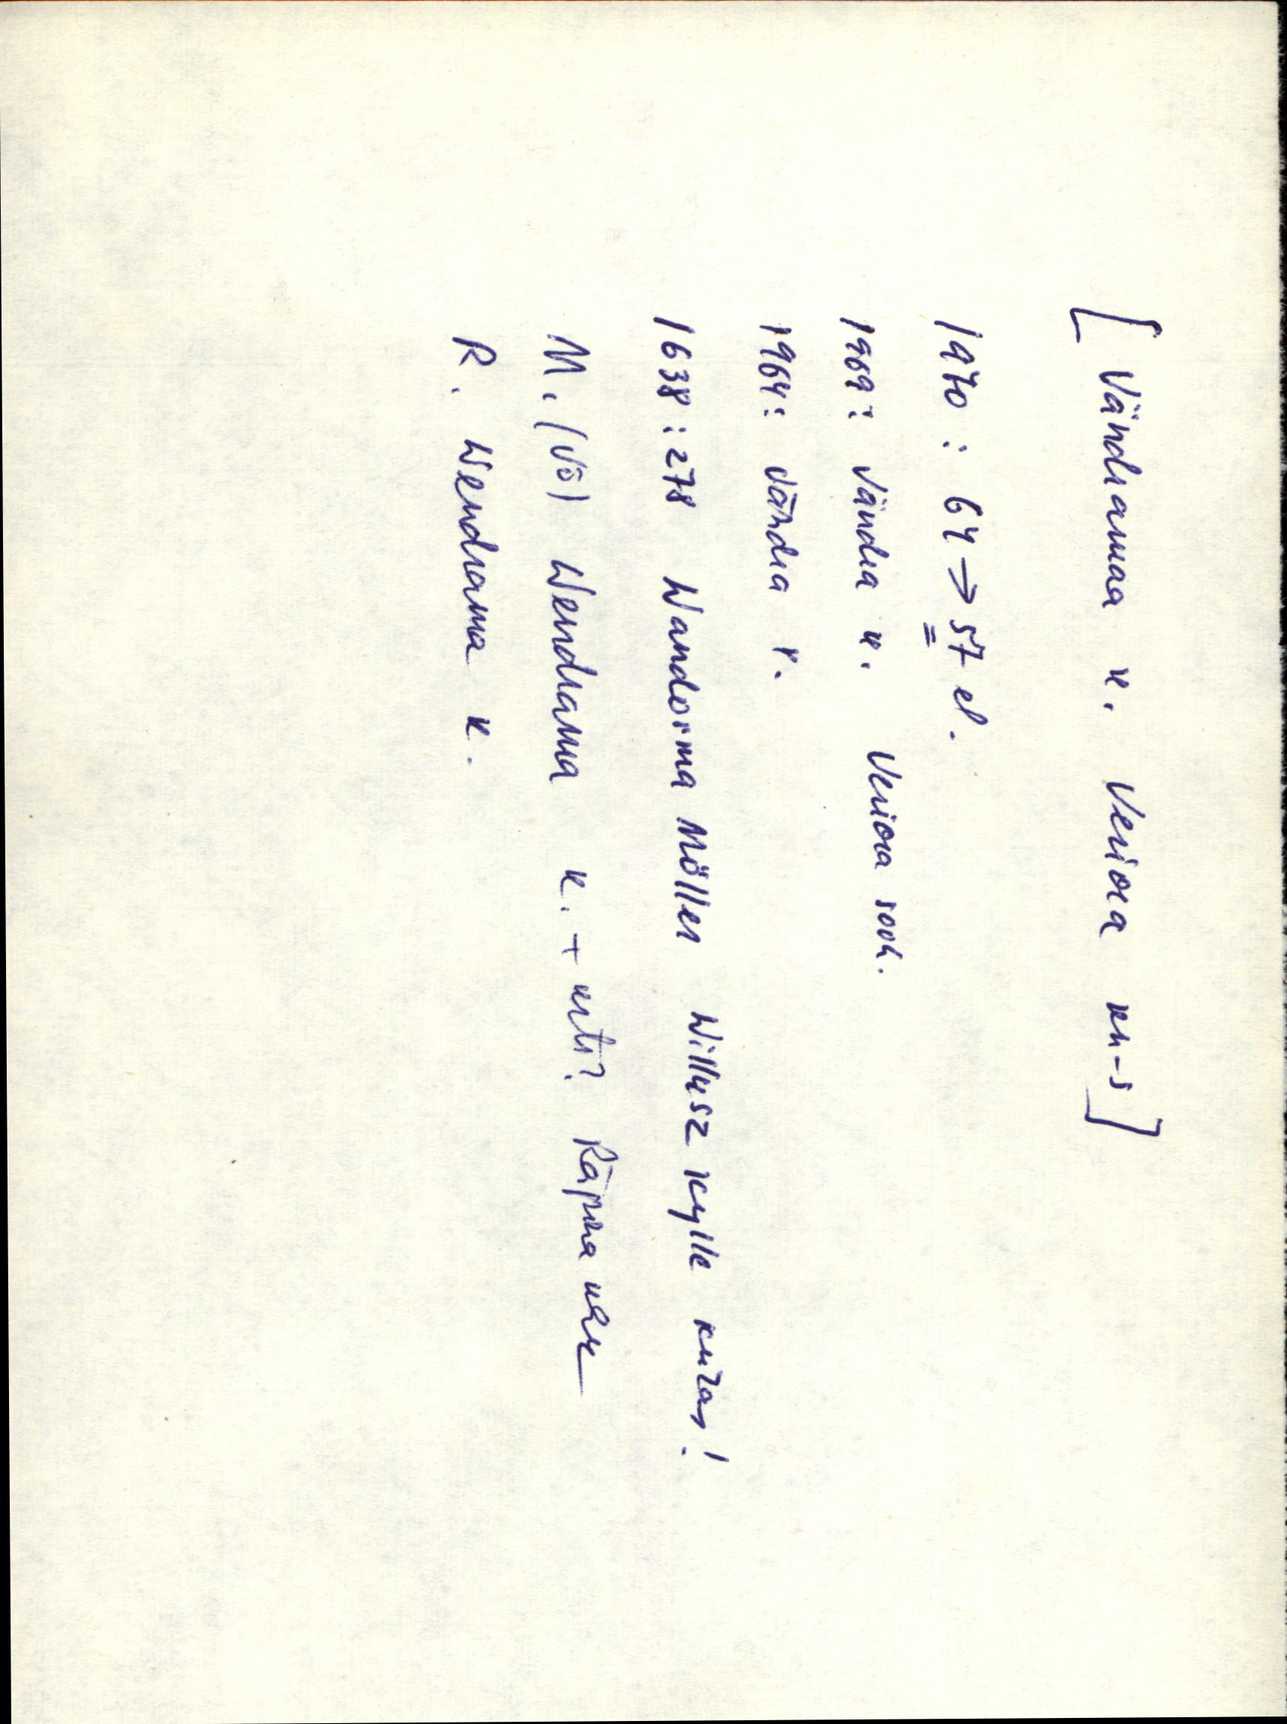 [ Vändramaa k. Veriora kn-s ]
1970 : 64 → 57 el.
1969 : Vändra k. Veriora sovh.
1964 : Vändra k.
1638 : 278 Wandorma Möller Willusz Kylle
M. (Võ) Wendrama k. +
R. Wendrama k.